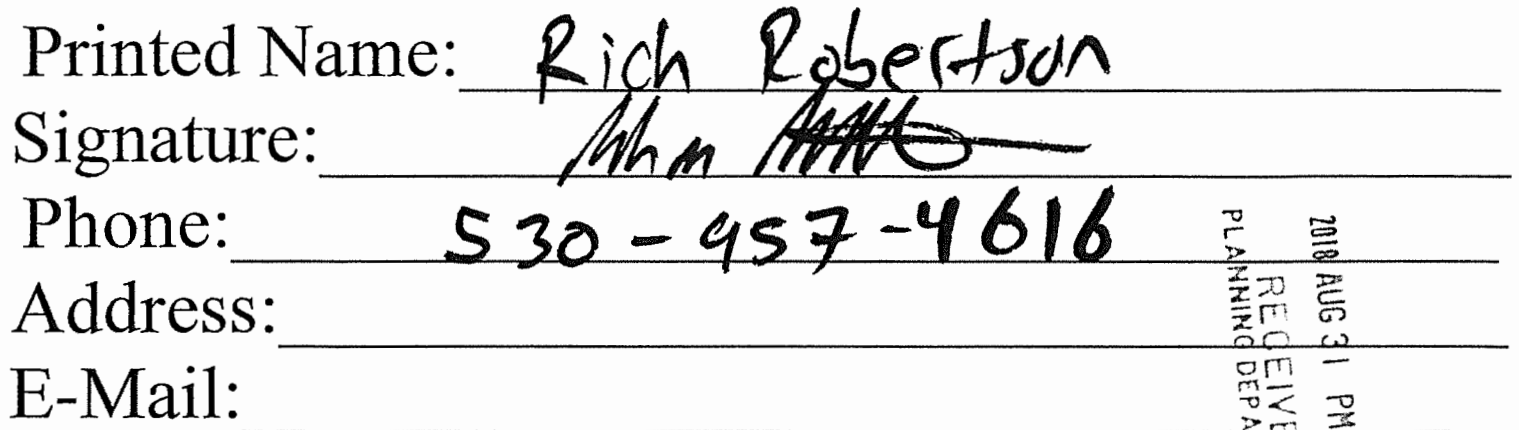 Printed Name: Rich Robertson
Signature:
Phone: 530-957-4616
Address:
E-Mail:
2018 AUG 31 PM
RECEIVE
PLANNING DEPA